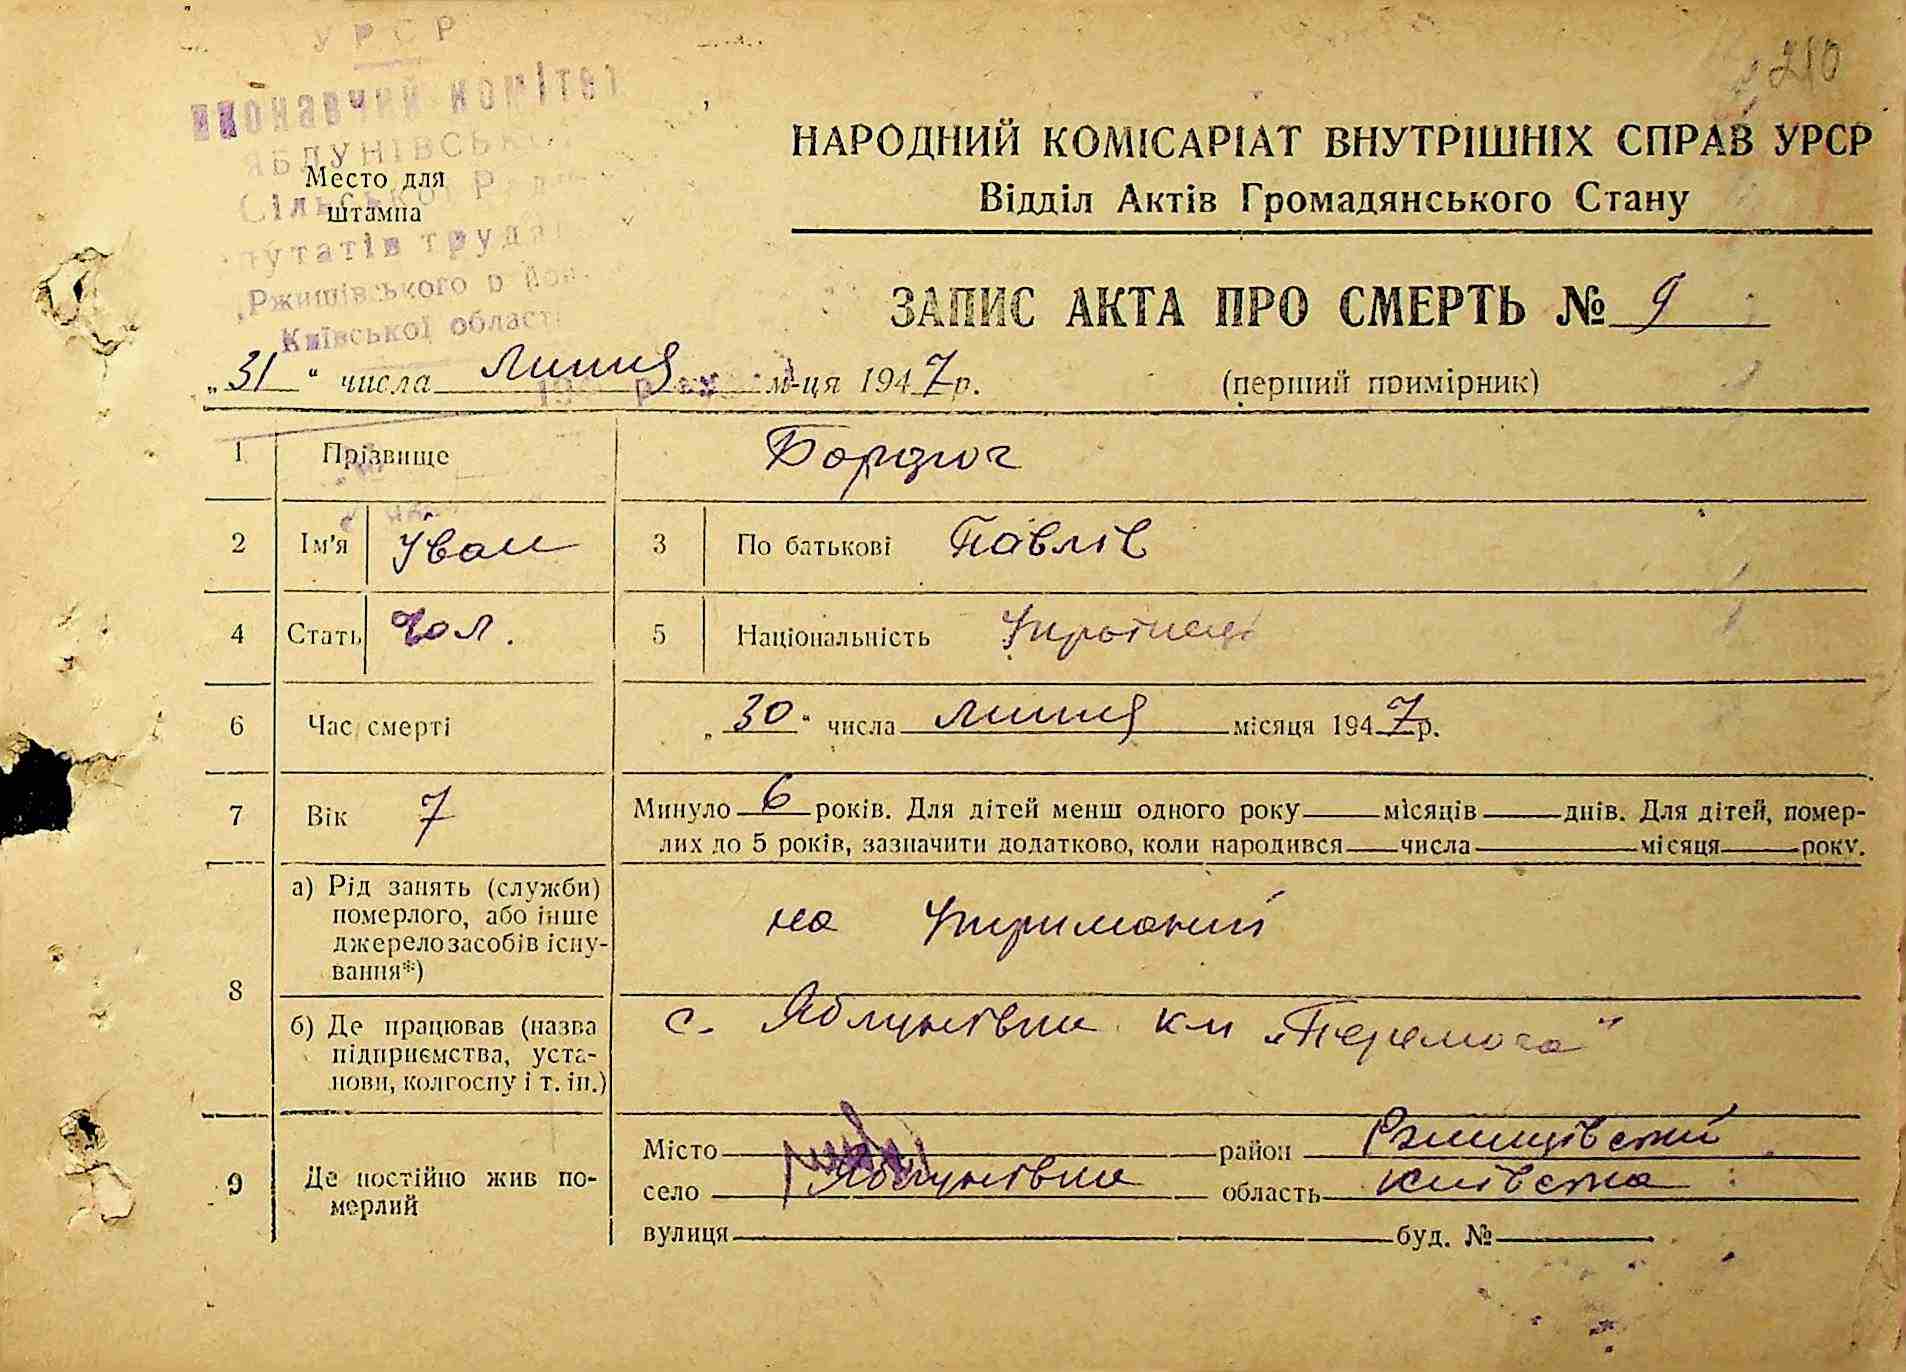 210
УРСР
виконавчий комітет
ЯБЛУНІВСЬКОЇ
Сільської Ради
депутатів трудящих
Ржищівського району
Київської області
Место для
штампа
НАРОДНИЙ КОМІСАРІАТ ВНУТРІШНІХ СПРАВ УРСР
Відділ Актів Громадянського Стану
ЗАПИС АКТА ПРО СМЕРТЬ № 9
„31“ числа липня м-ця 1947р.
(перший примірник)
1 Прізвище Бордюг
2 Ім'я Іван 3 По батькові Павлів
4 Стать Чол. 5 Національність
6 Час смерті „30“ числа липня місяця 1947р.
7 Вік 7 Минуло 6 років. Для дітей менш одного року місяців днів. Для дітей, помер-
лих до 5 років, зазначити додатково, коли народився числа місяця року.
8 а) Рід занять (служби)
померлого, або інше
джерело засобів існу-
вання*)
на утриманий
б) Де працював (назва
підприємства, уста-
нови, колгоспу і т. ін.)
с. Яблунівка к-п „Перемога“
9 Де постійно жив по-
мерлий
Місто район Ржищівський
село Яблунівка область Київська
вулиця буд. №